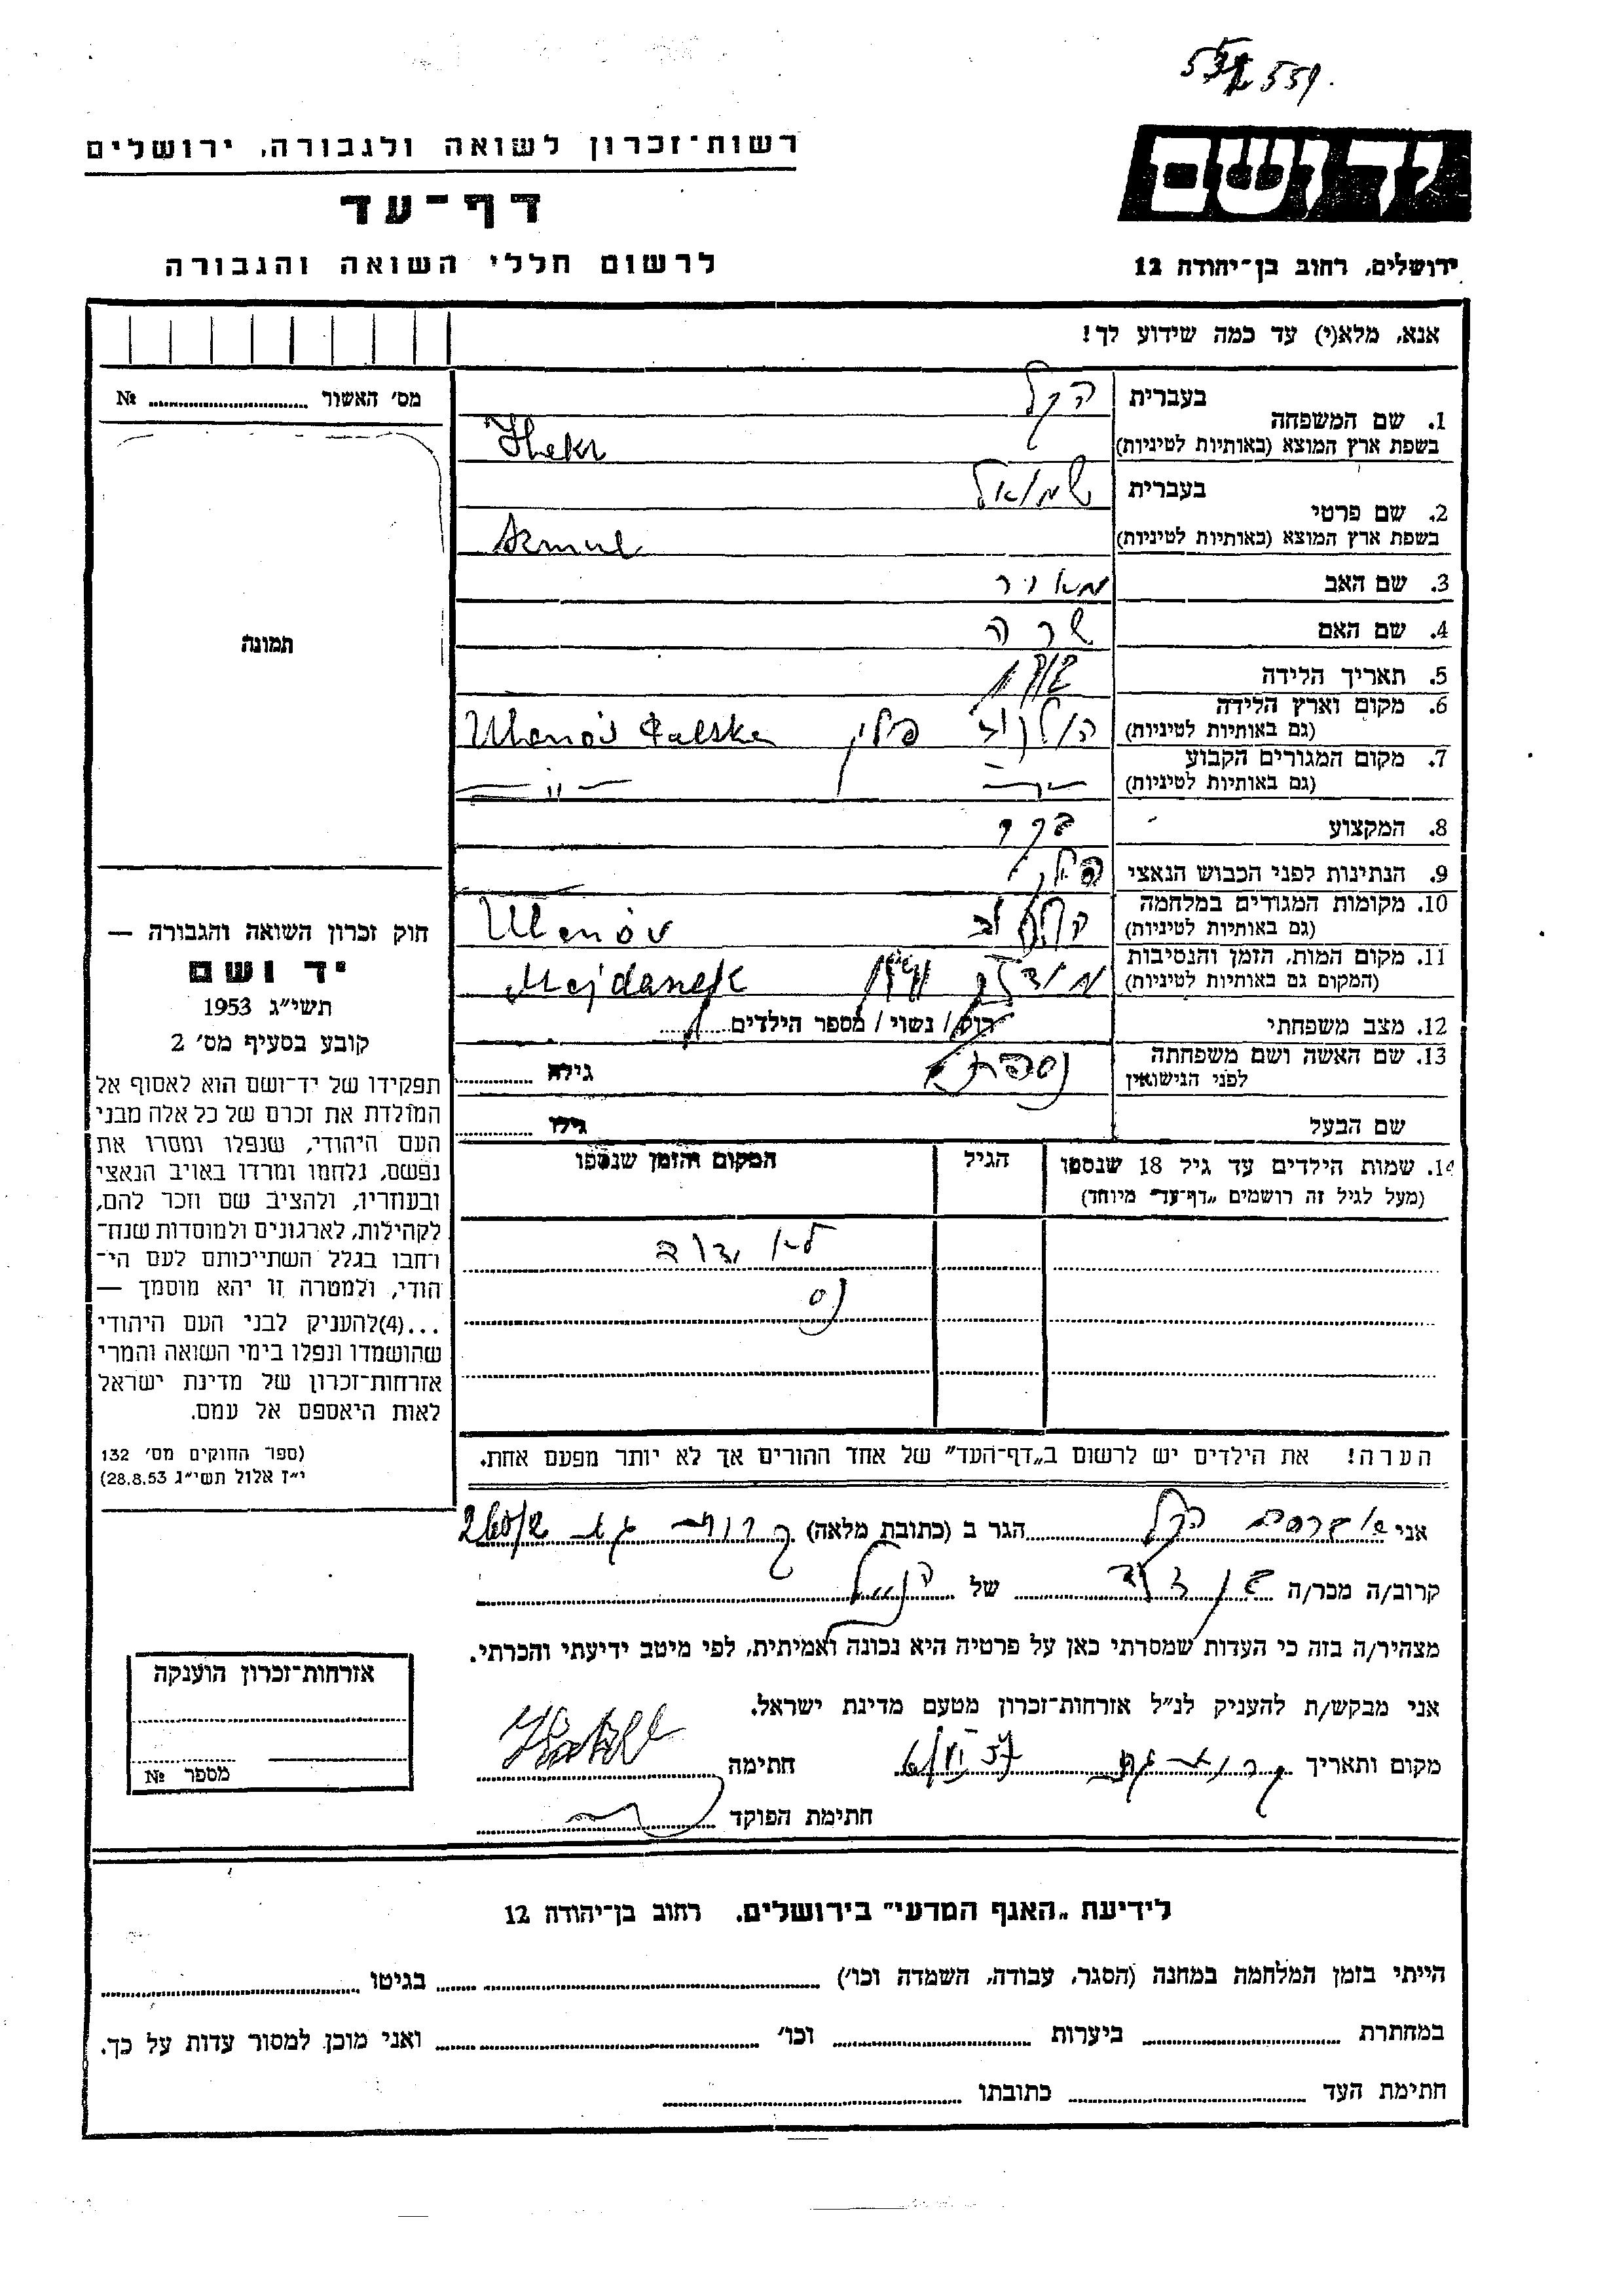 רשות־זכרון לשואה ולגבורה, ירושלים
דף־עד
לרשום חללי השואה והגבורה
יד ושם
ירושלים, רחוב בן־יהודה 12
אנא, מלא(י) עד כמה שידוע לך!
מס׳ האשור № 
תמונה
1. שם המשפחה
בעברית הקל
בשפת ארץ המוצא (באותיות לטיניות)
2. שם פרטי
בעברית שמואל
בשפת ארץ המוצא (באותיות לטיניות)
3. שם האב מאיר
4. שם האם שרה
5. תאריך הלידה
6. מקום וארץ הלידה
(גם באותיות לטיניות) פולין
7. מקום המגורים הקבוע
(גם באותיות לטיניות) -"-
8. המקצוע
9. הנתינות לפני הכבוש הנאצי
10. מקומות המגורים במלחמה
(גם באותיות לטיניות) Ulanów
11. מקום המות, הזמן והנסיבות
(המקום גם באותיות לטיניות) Majdanek
12. מצב משפחתי רווק / נשוי / מספר הילדים
13. שם האשה ושם משפחתה
לפני הנישואין גילה
שם הבעל גילו
14. שמות הילדים עד גיל 18 שנספו הגיל המקום והזמן שנספו
(מעל לגיל זה רושמים „דף־עד" מיוחד)
לא ידוע
הערה! את הילדים יש לרשום ב„דף־העד" של אחד ההורים אך לא יותר מפעם אחת.
חוק זכרון השואה והגבורה —
יד ושם
תשי״ג 1953
קובע בסעיף מס׳ 2
תפקידו של יד־ושם הוא לאסוף אל
המולדת את זכרם של כל אלה מבני
העם היהודי, שנפלו ומסרו את
נפשם, נלחמו ומרדו באויב הנאצי
ובעוזריו, ולהציב שם וזכר להם,
לקהילות, לארגונים ולמוסדות שנח־
רחבו בגלל השתייכותם לעם הי־
הודי, ולמטרה זו יהא מוסמך —
...(4)להעניק לבני העם היהודי
שהושמדו ונפלו בימי השואה והמרי
אזרחות־זכרון של מדינת ישראל
לאות היאספם אל עמם.
(ספר החוקים מס׳ 132
י״ז אלול תשי״ג 28.8.53)
אני הקל הגר ב (כתובת מלאה) קרית גת
קרוב/ה מכר/ה בן דוד של הנ"ל
מצהיר/ה בזה כי העדות שמסרתי כאן על פרטיה היא נכונה ואמיתית, לפי מיטב ידיעתי והכרתי.
אני מבקש/ת להעניק לנ״ל אזרחות־זכרון מטעם מדינת ישראל.
מקום ותאריך קרית גת חתימה
חתימת הפוקד
אזרחות־זכרון הוענקה
מספר №
לידיעת „האגף המדעי" בירושלים, רחוב בן־יהודה 12
הייתי בזמן המלחמה במחנה (הסגר, עבודה, השמדה וכו׳) בגיטו
במחתרת ביערות וכו׳ ואני מוכן למסור עדות על כך.
חתימת העד כתובתו